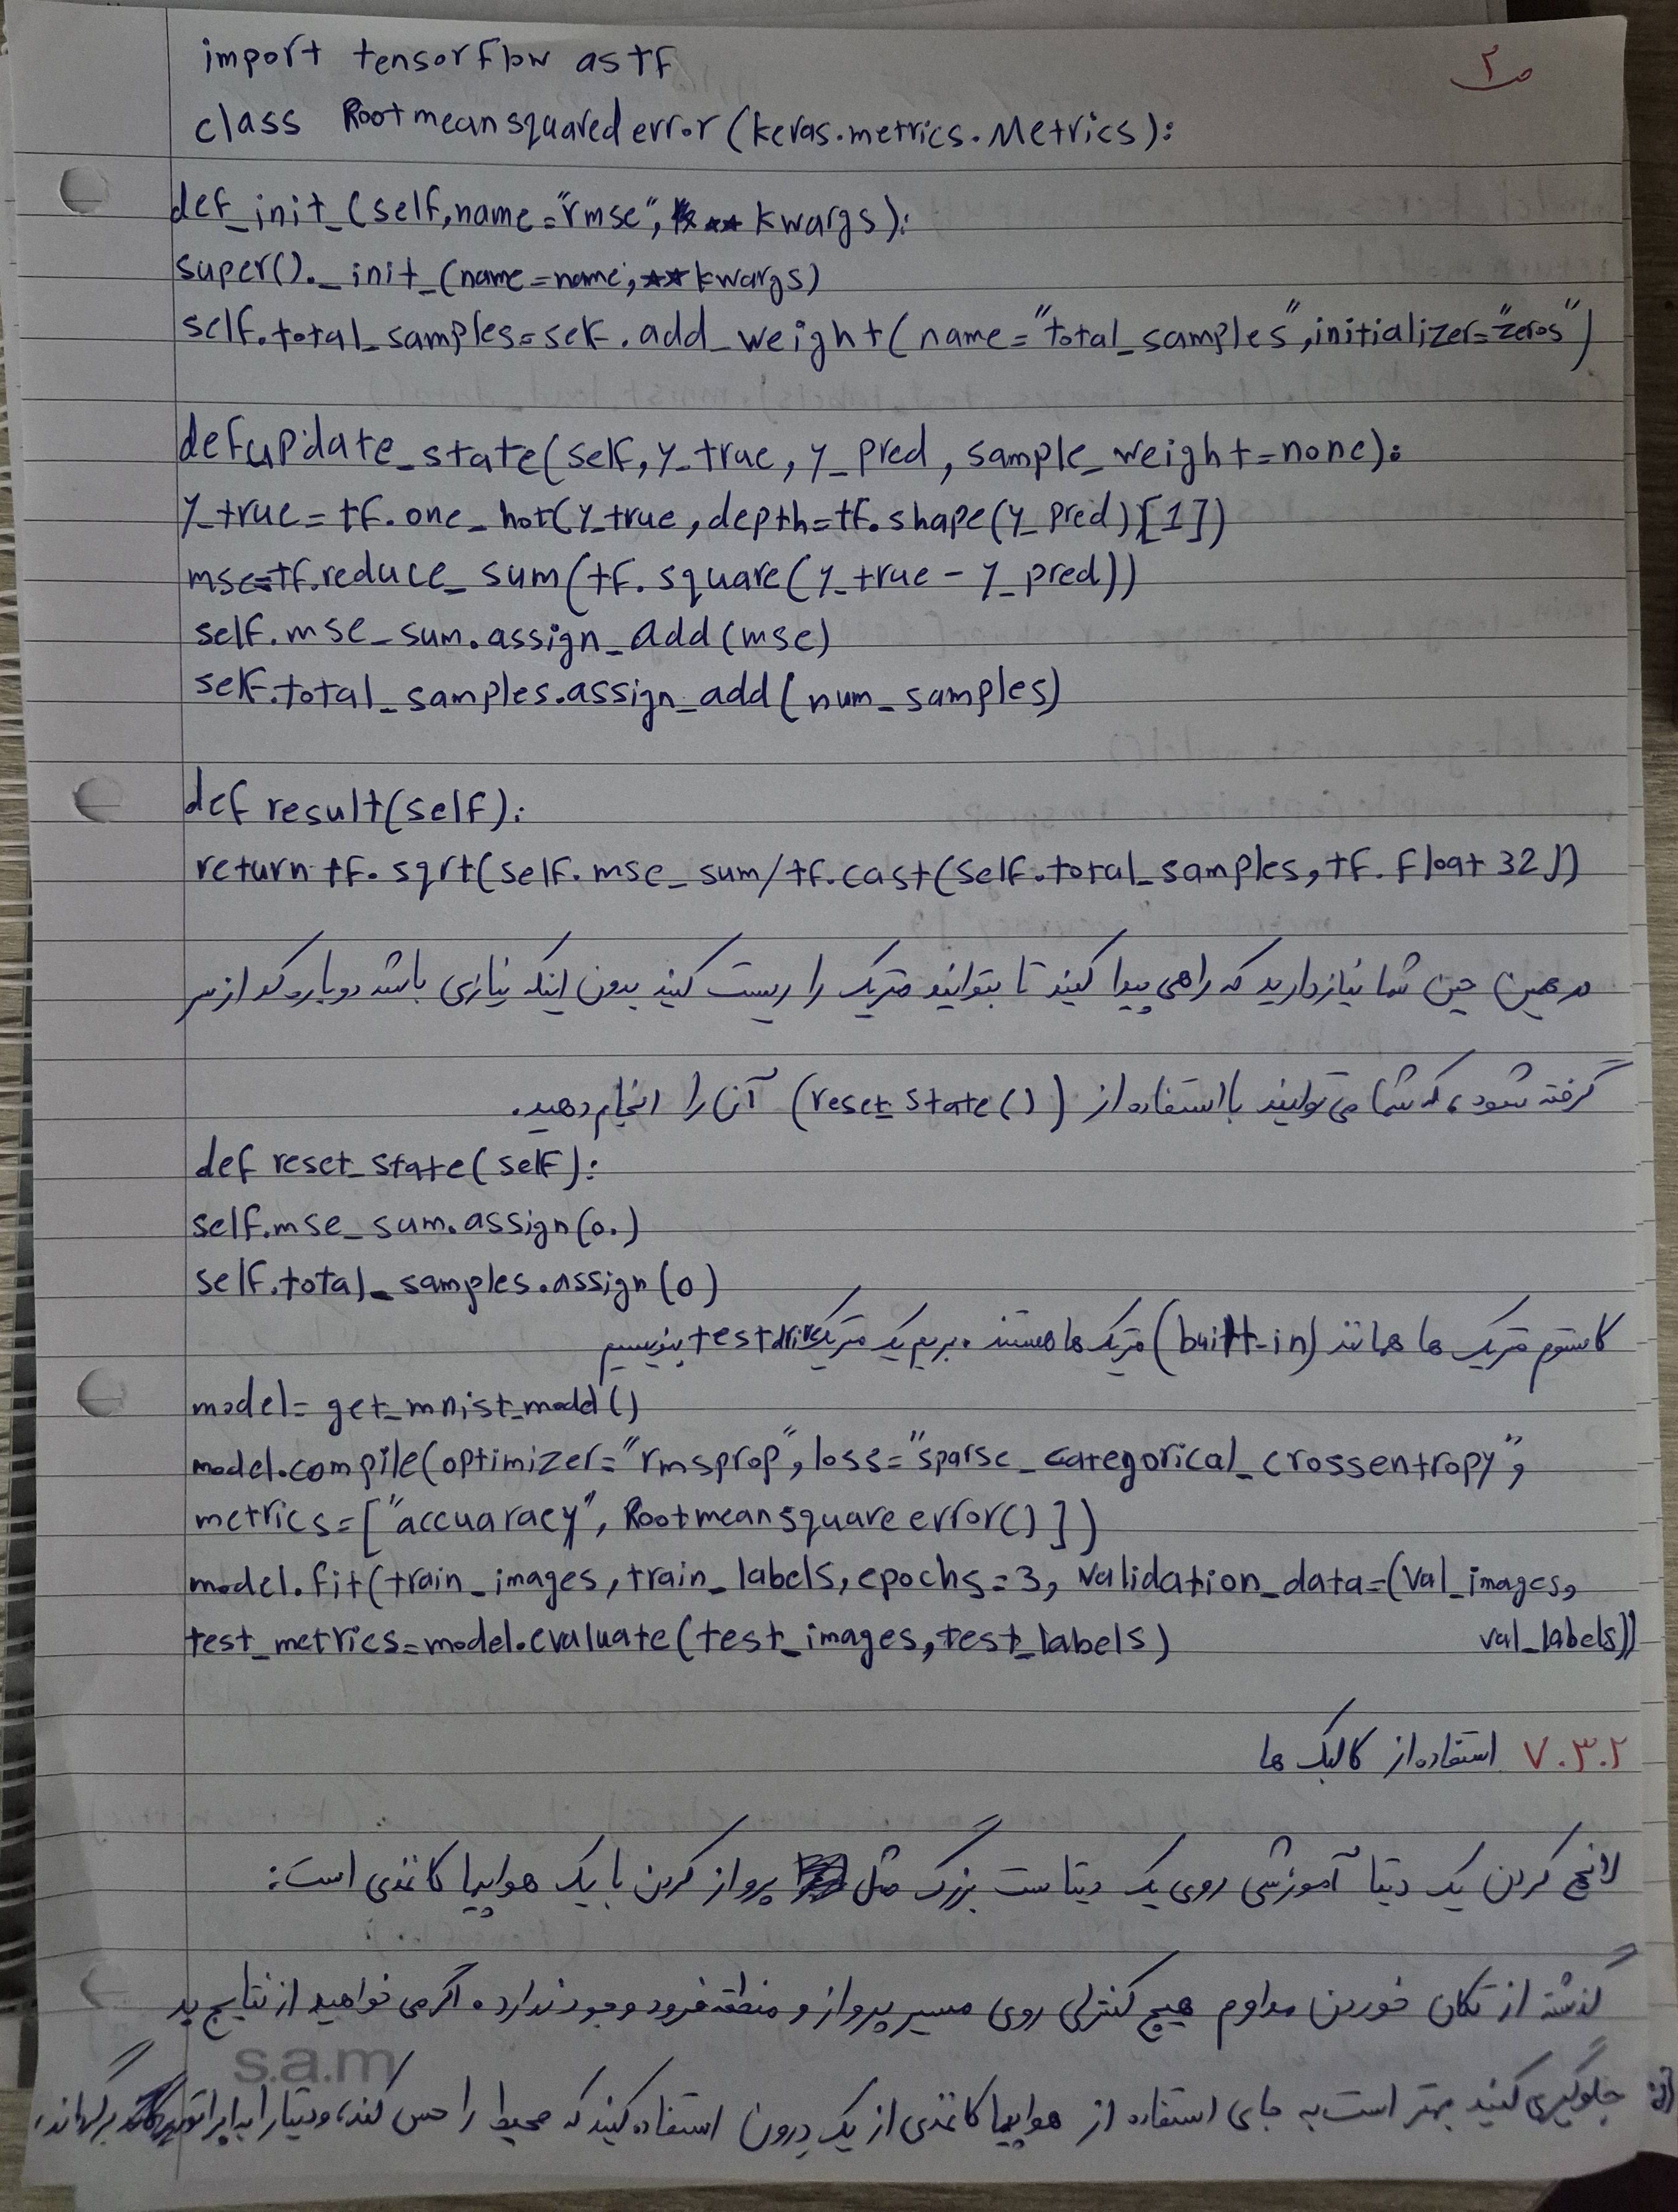 ص۲
import tensorflow as tf
class Rootmeansquarederror(keras.metrics.Metrics):
def_init_(self,name="rmse", ** kwargs):
super()._init_(name=name,**kwargs)
self.total_samples=self.add_weight(name="total_samples",initializer="zeros")
def update_state(self,y_true,y_pred,sample_weight=none):
y_true=tf.one_hot(y_true,depth=tf.shape(y_pred)[1])
mse=tf.reduce_sum(tf.square(y_true-y_pred))
self.mse_sum.assign_add(mse)
self.total_samples.assign_add(num_samples)
def result(self):
return tf.sqrt(self.mse_sum/tf.cast(self.total_samples,tf.float32))
در همین حین شما نیاز دارید که راهی پیدا کنید تا بتوانید متریک را ریست کنید بدون اینکه نیازی باشد دوباره کد از سر
گرفته شود، که شما می توانید با استفاده از (reset_state()) آن را انجام دهید.
def reset_state(self):
self.mse_sum.assign(0.)
self.total_samples.assign(0)
کاستوم متریک ها همانند (built-in) متریک ها هستند. بریم یک متریک test drive بنویسیم
model=get_mnist_model()
model.compile(optimizer="rmsprop",loss="sparse_categorical_crossentropy",
metrics=["accuaracy",Rootmeansquareerror()])
model.fit(train_images,train_labels,epochs=3,validation_data=(val_images,
val_labels))
test_metrics=model.evaluate(test_images,test_labels)
۷.۳.۲ استفاده از کالبک ها
لانچ کردن یک دیتا آموزشی روی یک دیتاست بزرگ مثل پرواز کردن با یک هواپیما کاغذی است:
گذشته از تکان خوردن مداوم هیچ کنترلی روی مسیر پرواز و منطقه فرود وجود ندارد. اگر می خواهید از نتایج بد
جلوگیری کنید بهتر است به جای استفاده از هواپیما کاغذی از یک درون استفاده کنید که محیط را حس کند، و دیتا را به اپراتور برگرداند،
s.a.m